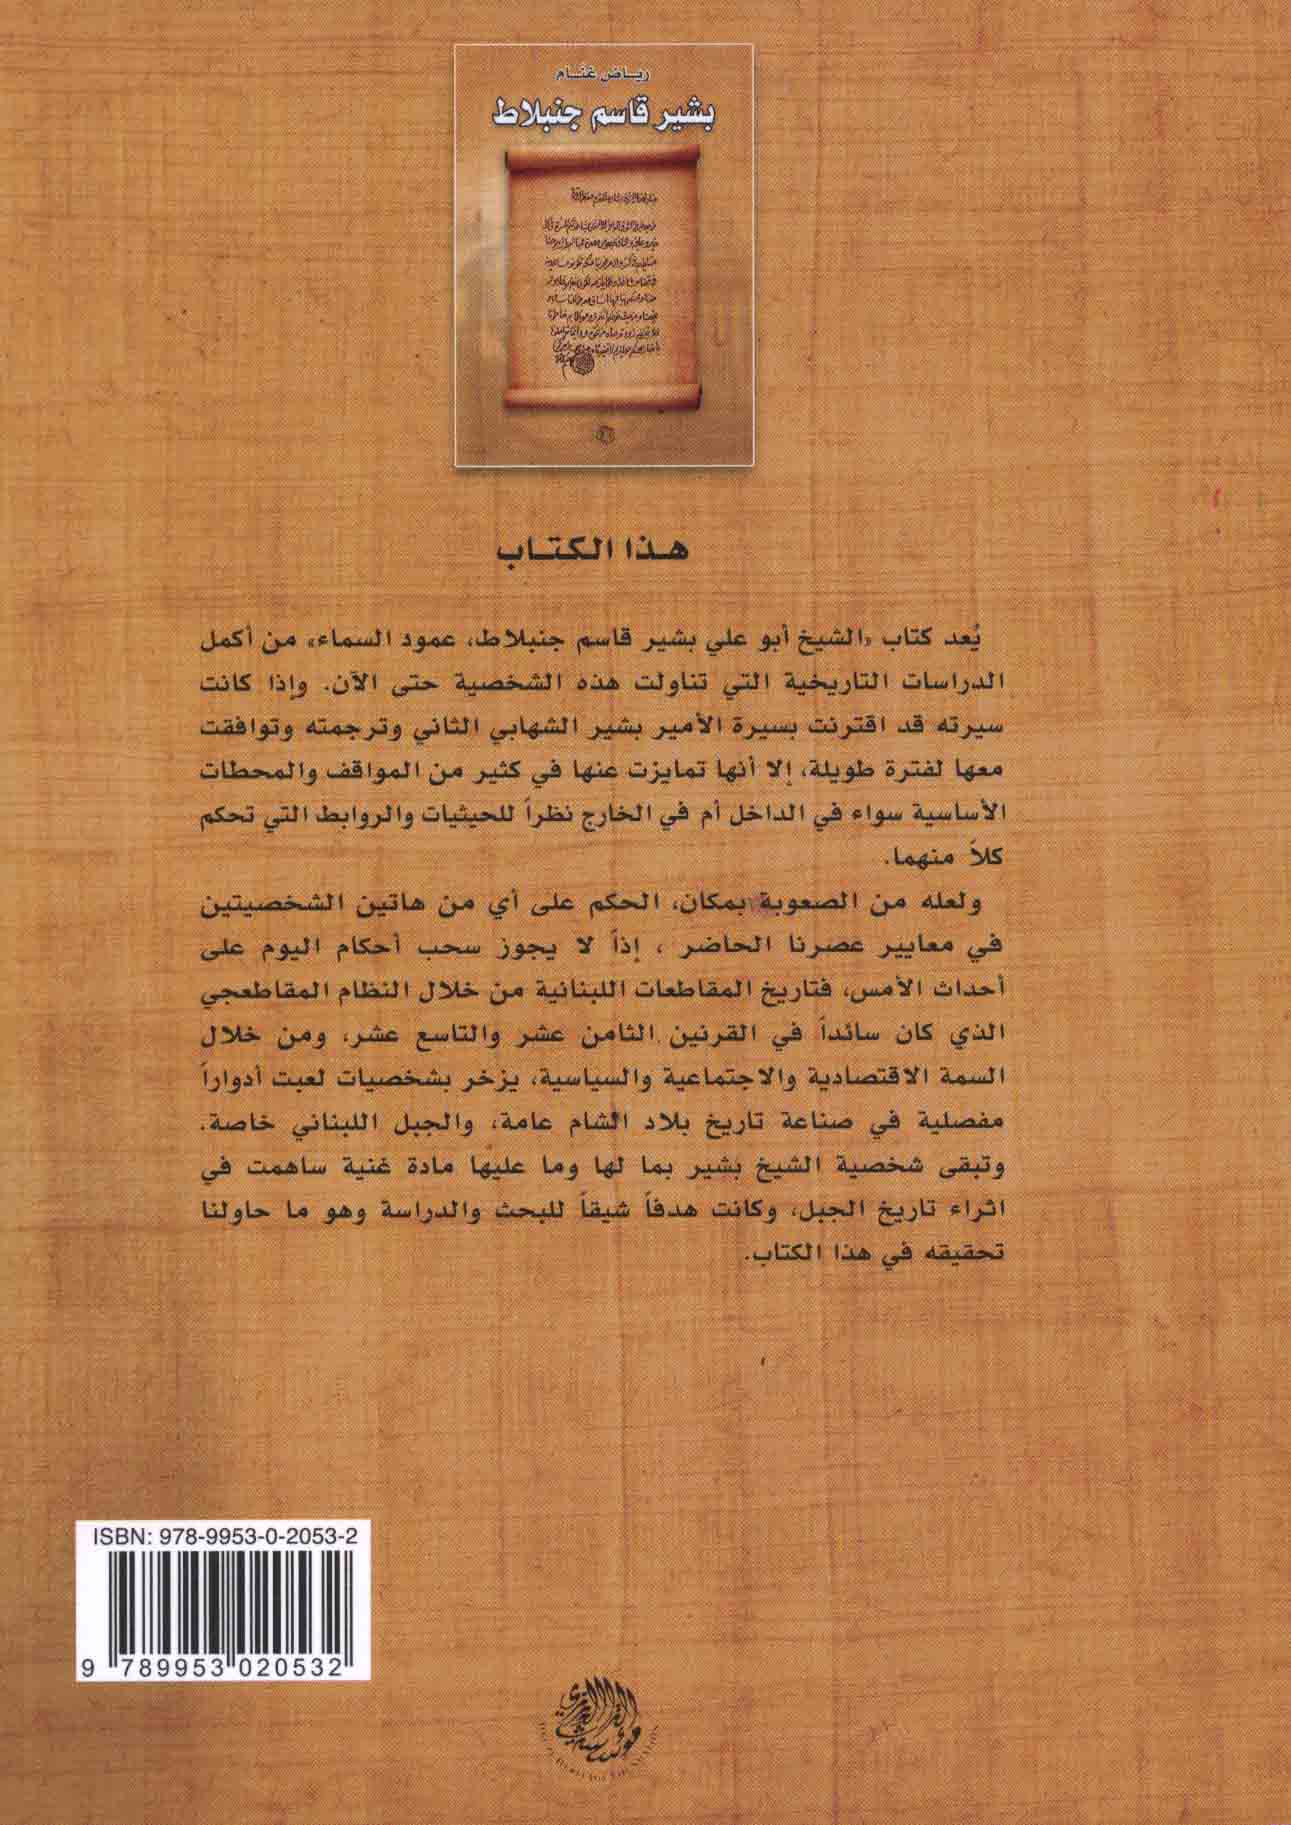 رياض غنام
بشير قاسم جنبلاط
هذا الكتاب
يُعد كتاب «الشيخ أبو علي بشير قاسم جنبلاط، عمود السماء» من أكمل
الدراسات التاريخية التي تناولت هذه الشخصية حتى الآن. وإذا كانت
سيرته قد اقترنت بسيرة الأمير بشير الشهابي الثاني وترجمته وتوافقت
معها لفترة طويلة، إلا أنها تمايزت عنها في كثير من المواقف والمحطات
الأساسية سواء في الداخل أم في الخارج نظراً للحيثيات والروابط التي تحكم
كلاً منهما.
ولعله من الصعوبة بمكان، الحكم على أي من هاتين الشخصيتين
في معايير عصرنا الحاضر ، إذاً لا يجوز سحب أحكام اليوم على
أحداث الأمس، فتاريخ المقاطعات اللبنانية من خلال النظام المقاطعجي
الذي كان سائداً في القرنين الثامن عشر والتاسع عشر، ومن خلال
السمة الاقتصادية والاجتماعية والسياسية، يزخر بشخصيات لعبت أدواراً
مفصلية في صناعة تاريخ بلاد الشام عامة، والجبل اللبناني خاصة.
وتبقى شخصية الشيخ بشير بما لها وما عليها مادة غنية ساهمت في
اثراء تاريخ الجبل، وكانت هدفاً شيقاً للبحث والدراسة وهو ما حاولنا
تحقيقه في هذا الكتاب.
ISBN: 978-9953-0-2053-2
9 789953 020532